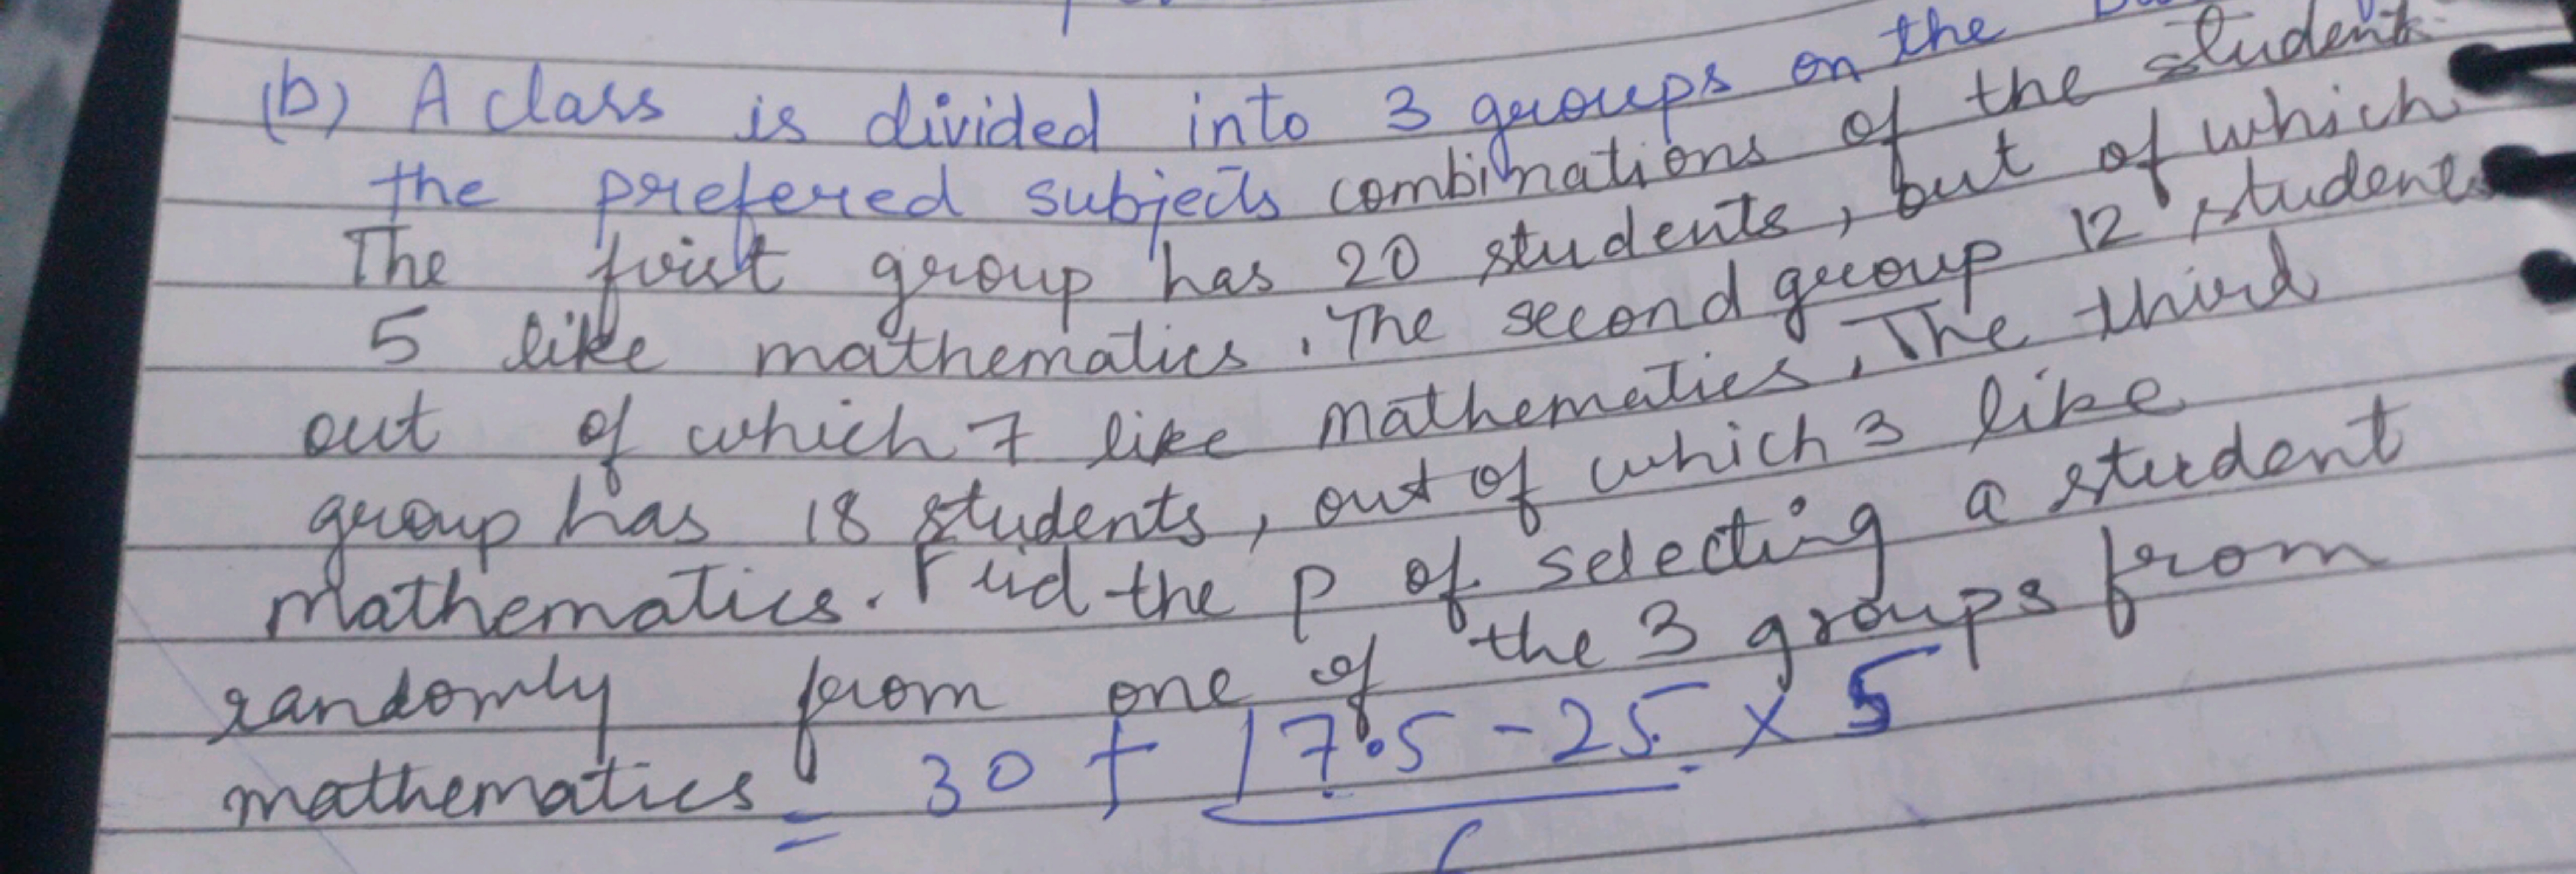 (b) A class is divided into 3 groups on the
the prefered subjects combinations of the student
The first group has 20 students, out of which
5 like mathematics. The second group 12 students
out of which 7 like mathematics, The third
group has 18 students, out of which 3 like
mathematics. Find the p of selecting a student
randomly from one of the 3 groups from
mathematics
= 30 + 17.5 - 25 x 5